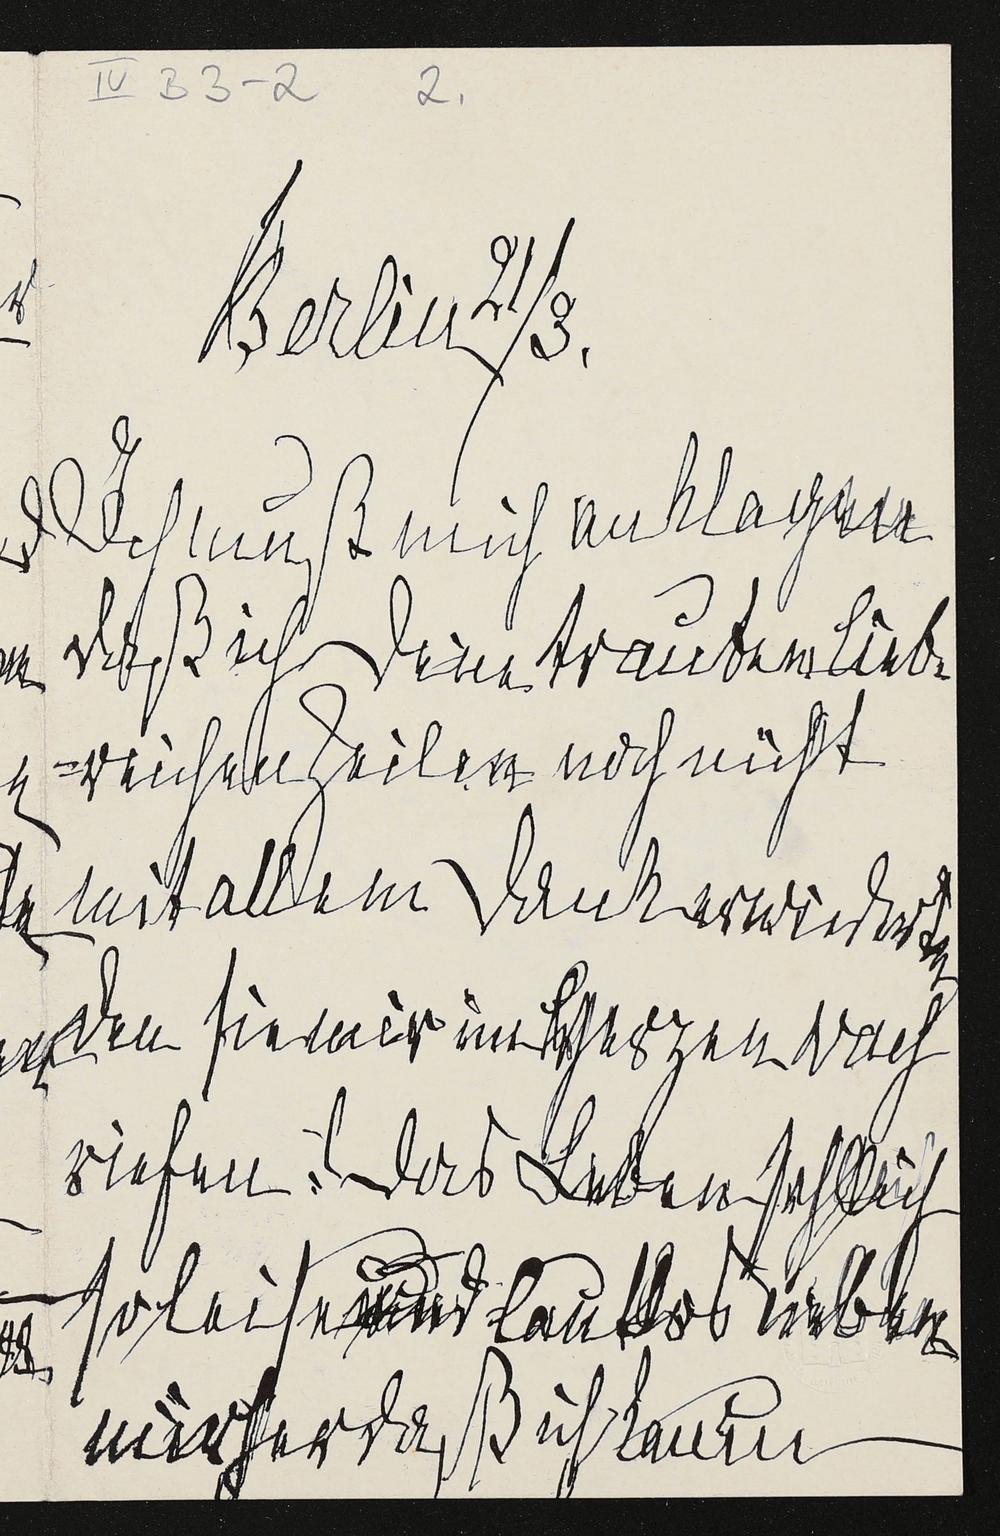 IV B 3-2 2.
Berlin 21/3.
Ich muß mich anklagen
daß ich Deine trauten liebe
=reichen Zeilen noch nicht
mit allem Dank erwiederte
den sie mir im Herzen wach
riefen! das Leben schlich
so leise und lautlos neben
mir her daß ich kaum